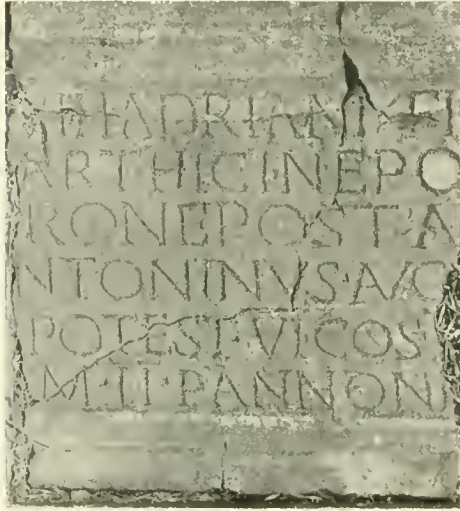 HADRIANI·FI
ARTHICI NEPO
RONEPOST·A
NTONINVS·AVG
POTEST·VI·COS
M·II·PANNONI